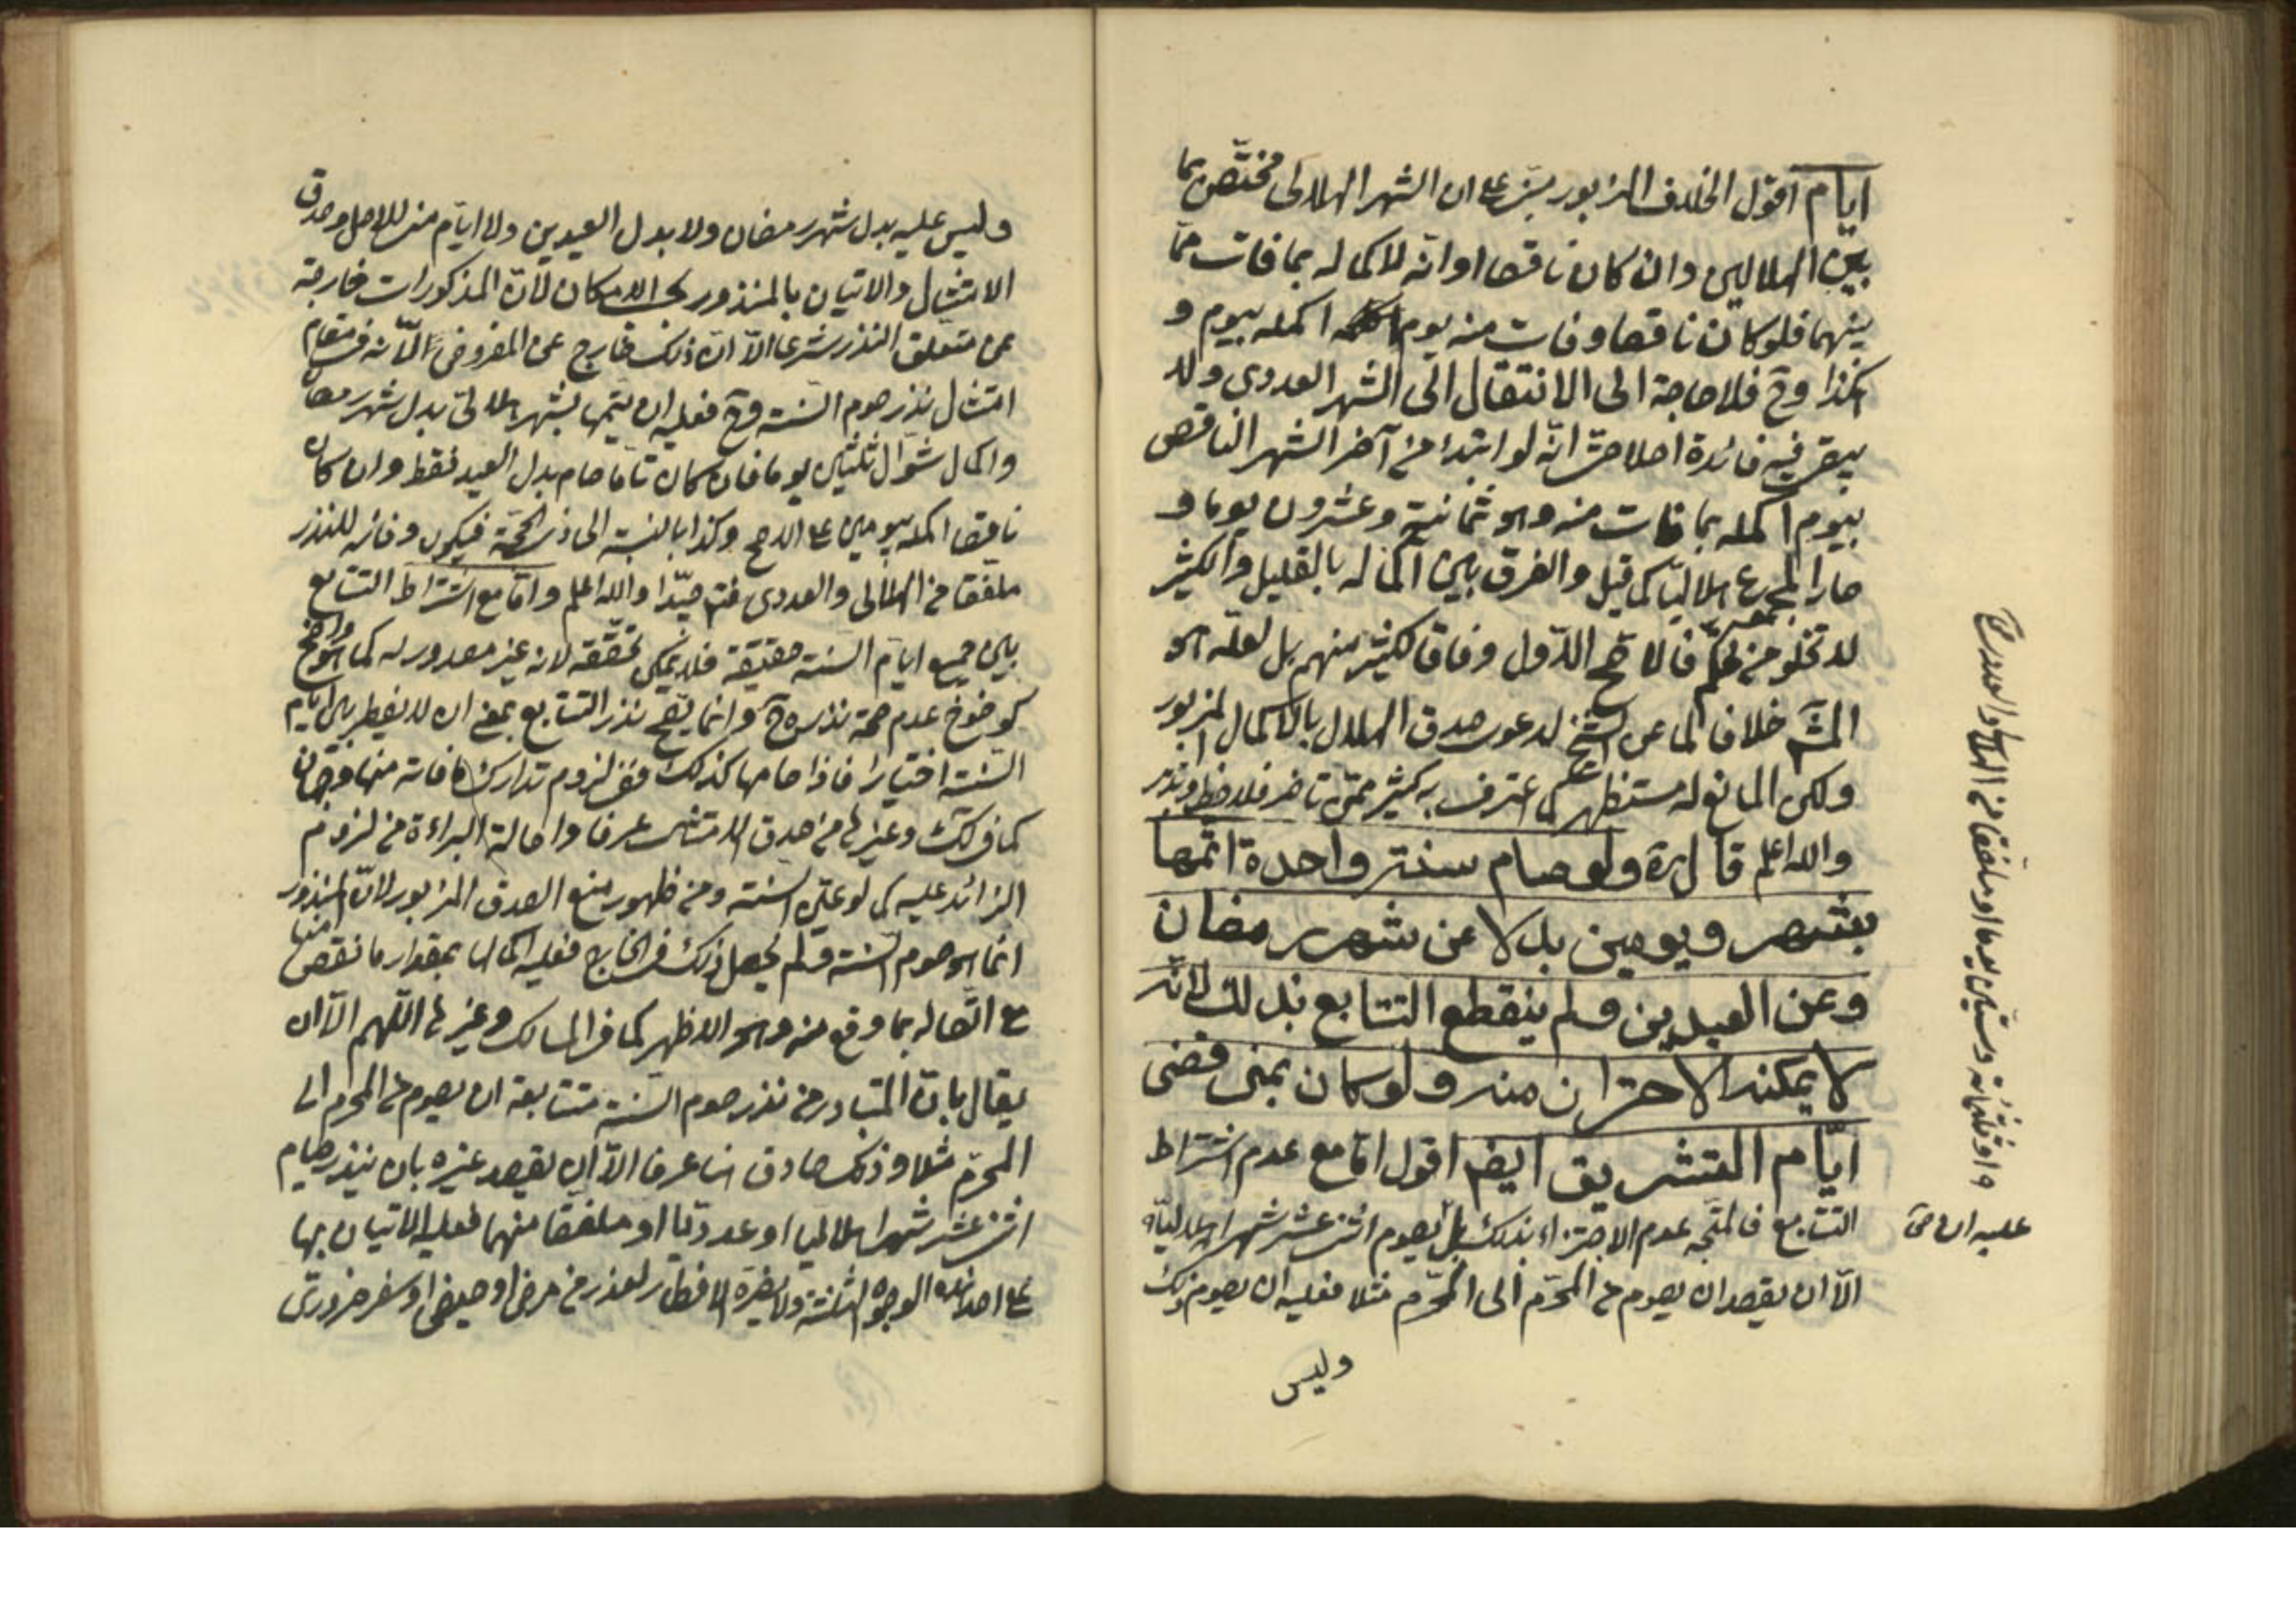 ايام اقول الخلاف المزبور مبني على ان الشهر الهلالى مختص بما
بين الهلالين وان كان ناقصا او انه لاكماله بما فات مما
بينهما فلو كان ناقصا وفات منه يوم اكمله بيوم و
هكذا وح فلا حاجة الى الانتقال الى الشهر العددى ولا
يبقى فيه فائدة اصلا حتى انه لو ابتدئ من آخر الشهر الناقص
بيوم اكمله بما فات منه وهو ثمانية وعشرون يوما و
صار المجموع هلاليا كما قيل والفرق بين اكماله بالقليل والكثير
لا تخلو من تحكم فالاصح الاول وفاقا لكثير منهم بل لعله هو
المشهور خلافا لما عن الشيخ لدعوى صدق الهلال بالاكمال المزبور
ولكن المانع له مستظهر كما اعترف به كثير ممن تاخر فلاحظ وتدبر
والله اعلم قال ره ولو صام سنة واحدة اتمها
بشهر ويومين بدلا عن شهر رمضان
وعن العيدين ولم ينقطع التتابع بذلك لانه
لا يمكنه الاحتراز منه ولو كان بمنى قضى
ايام التشريق ايضا اقول اما مع عدم اشتراط
التتابع فالمتجه عدم الاجتزاء بذلك بل يصوم اثنى عشر شهرا هلالياه
الا ان يقصد ان يصوم من المحرم الى المحرم مثلا فعليه ان يصوم ذلك
وليس
ه او ثلثمائة وستين يوما او ملفقا من الهلالى والعددى
وليس عليه بدل شهر رمضان ولا بدل العيدين ولا ايام منى للاصل وصدق
الامتثال والاتيان بالمنذور بحسب الامكان لان المذكورات خارجة
عن متعلق النذر شرعا الا ان ذلك خارج عن المفروض الا انه فى مقام
امتثال نذر صوم السنة وح فعليه ان يتمها بشهر هلالى بدل شهر رمضان
واكمال شوال ثلثين يوما فان كان تاما صام بدل العيد فقط وان كان
ناقصا اكمله بيومين على الاصح وكذا بالنسبة الى ذى الحجة فيكون وفائه للنذر
ملفقا من الهلالى والعددى فتم جيدا والله اعلم واما مع اشتراط التتابع
بين جميع ايام السنة حقيقة فلا يمكن تحققه لانه غير مقدور له كما هو واضح
كوضوح عدم صحة نذره ح وانما يصح نذر التتابع بمعنى ان لا يفطر بين ايام
السنة اختيارا فاذا صامها كذلك ففى لزوم تدارك ما فاته منها وجهان
كما فى لك وغيرها من صدق الامتثال عرفا واصالة البراءة من لزوم
الزائد عليه كما لو عين السنة ومن ظهور منع الصدق المزبور لان المنذور
انما هو صوم السنة ولم يحصل ذلك فى الخارج فعليه اكمالها بمقدار ما نقص منها
مع اتصاله بما وقع منه وهو الاظهر كما فى المسالك وغيرها اللهم الا ان
يقال بان المتبادر من نذر صوم السنة متتابعة ان يصوم من المحرم الى
المحرم مثلا وذلك صادق هنا عرفا الا ان يقصد غيره بان ينذر صيام
اثنى عشر شهرا هلاليا او عدديا او ملفقا منهما فعليه الاتيان بها
على احد هذه الوجوه الثلثة ولا يضره الافطار لعذر من مرض او حيض او سفر ضرورى